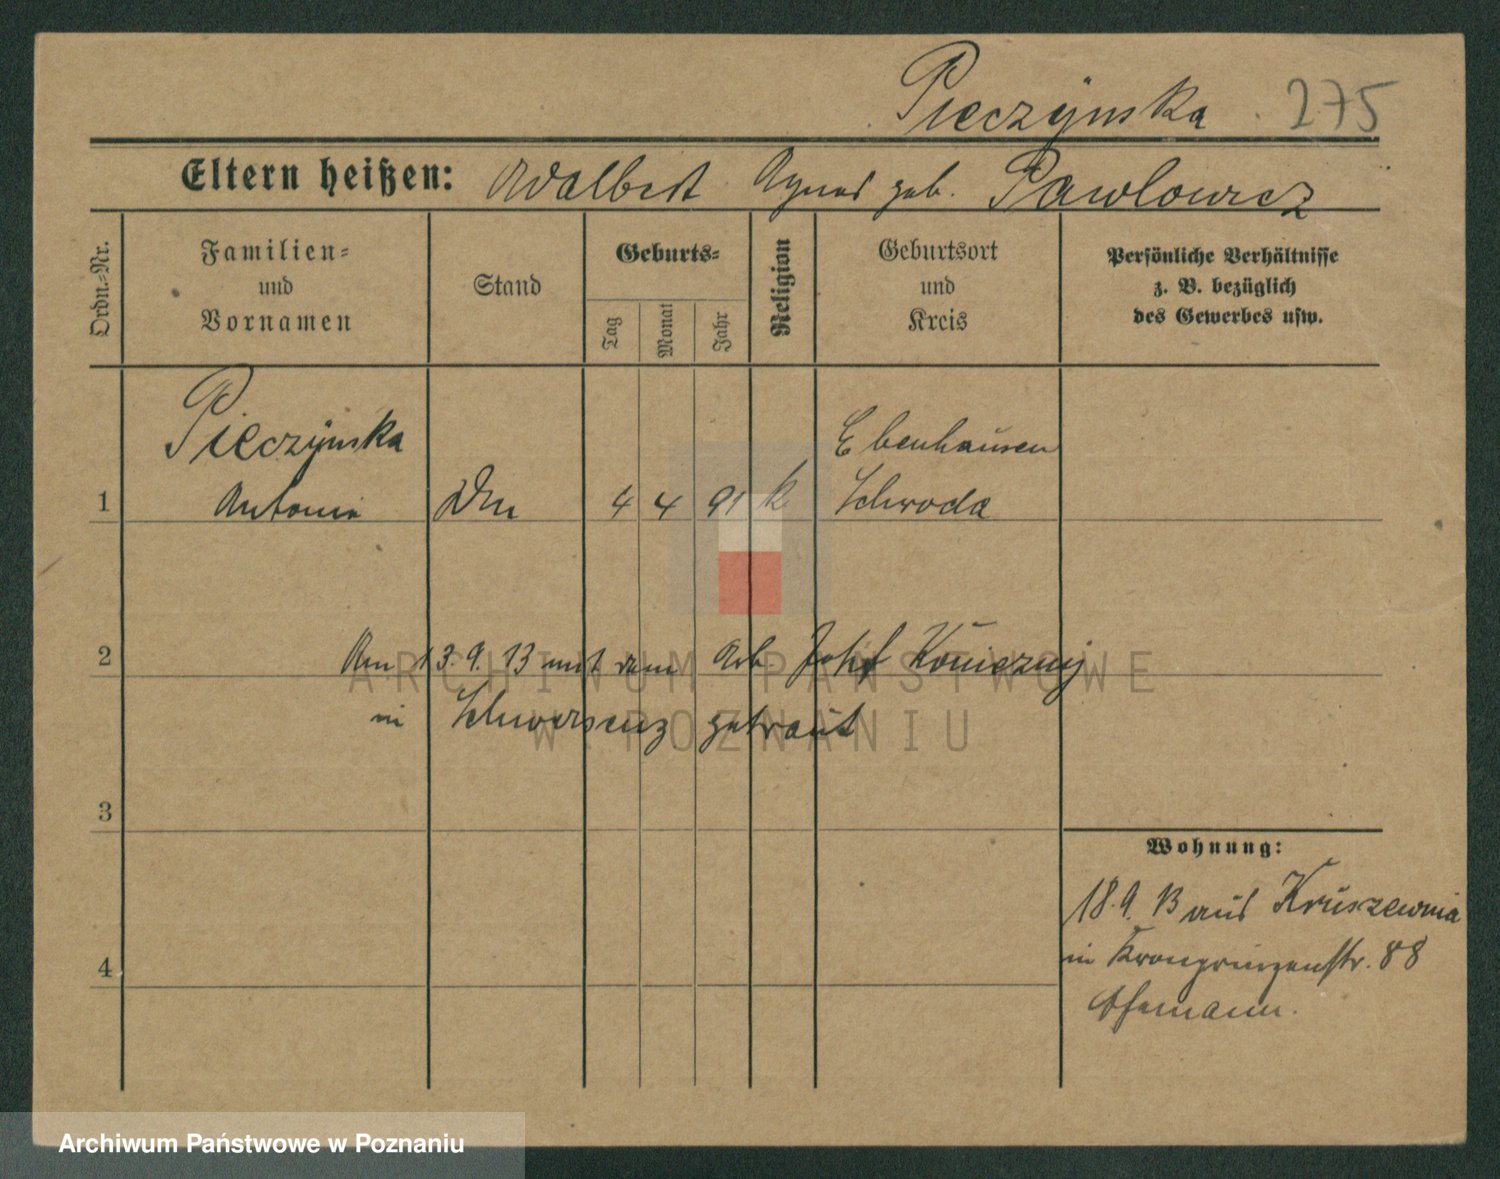 Pieczynska 275
Eltern heißen: Adalbert Agnes geb. Pawlowicz
Ordn.-Nr.
Familien-
und
Vornamen
Stand
Geburts-
Tag
Monat
Jahr
Religion
Geburtsort
und
Kreis
Persönliche Verhältnisse
z. B. bezüglich
des Gewerbes usw.
Pieczynska Ebenhausen
1 Antonie 4 4 91 k Schroda
2 Am 13.9.13 mit dem Arb Josef Konieczny
in Schwersenz getraut
3
Wohnung:
18.9.13 aus Kruszewnia
in Kronprinzenstr. 88
4
Ehemann.
ARCHIWUM PAŃSTWOWE
W POZNANIU
Archiwum Państwowe w Poznaniu